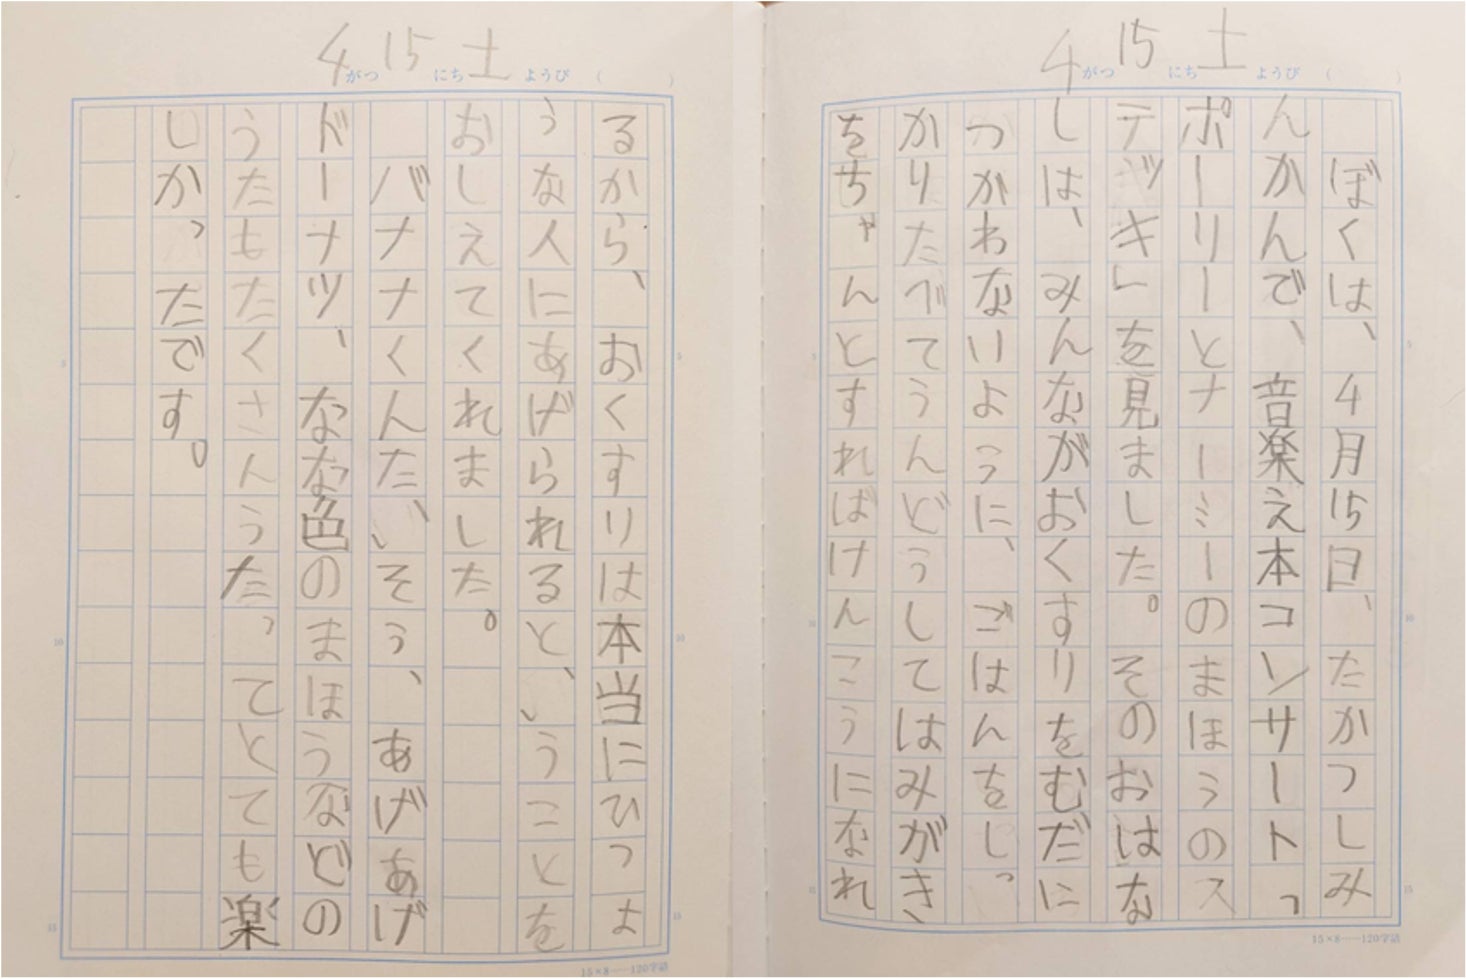 4がつ15にち土ようび（　　）
ぼくは、4月15日、たかつしみ
んかんで、音楽え本コンサート「
ポーリーとナーミーのまほうのス
テッキ」を見ました。そのおはな
しは、みんながおくすりをむだに
つかわないように、ごはんをしっ
かりたべてうんどうしてはみがき
をちゃんとすればけんこうになれ
15×8……120字詰
4がつ15にち土ようび（　　）
るから、おくすりは本当にひつよ
うな人にあげられるということを
おしえてくれました。
バナナくんたいそう、あげあげ
ドーナツ、なな色のまほうなどの
うたもたくさんうたってとても楽
しかったです。
15×8……120字詰